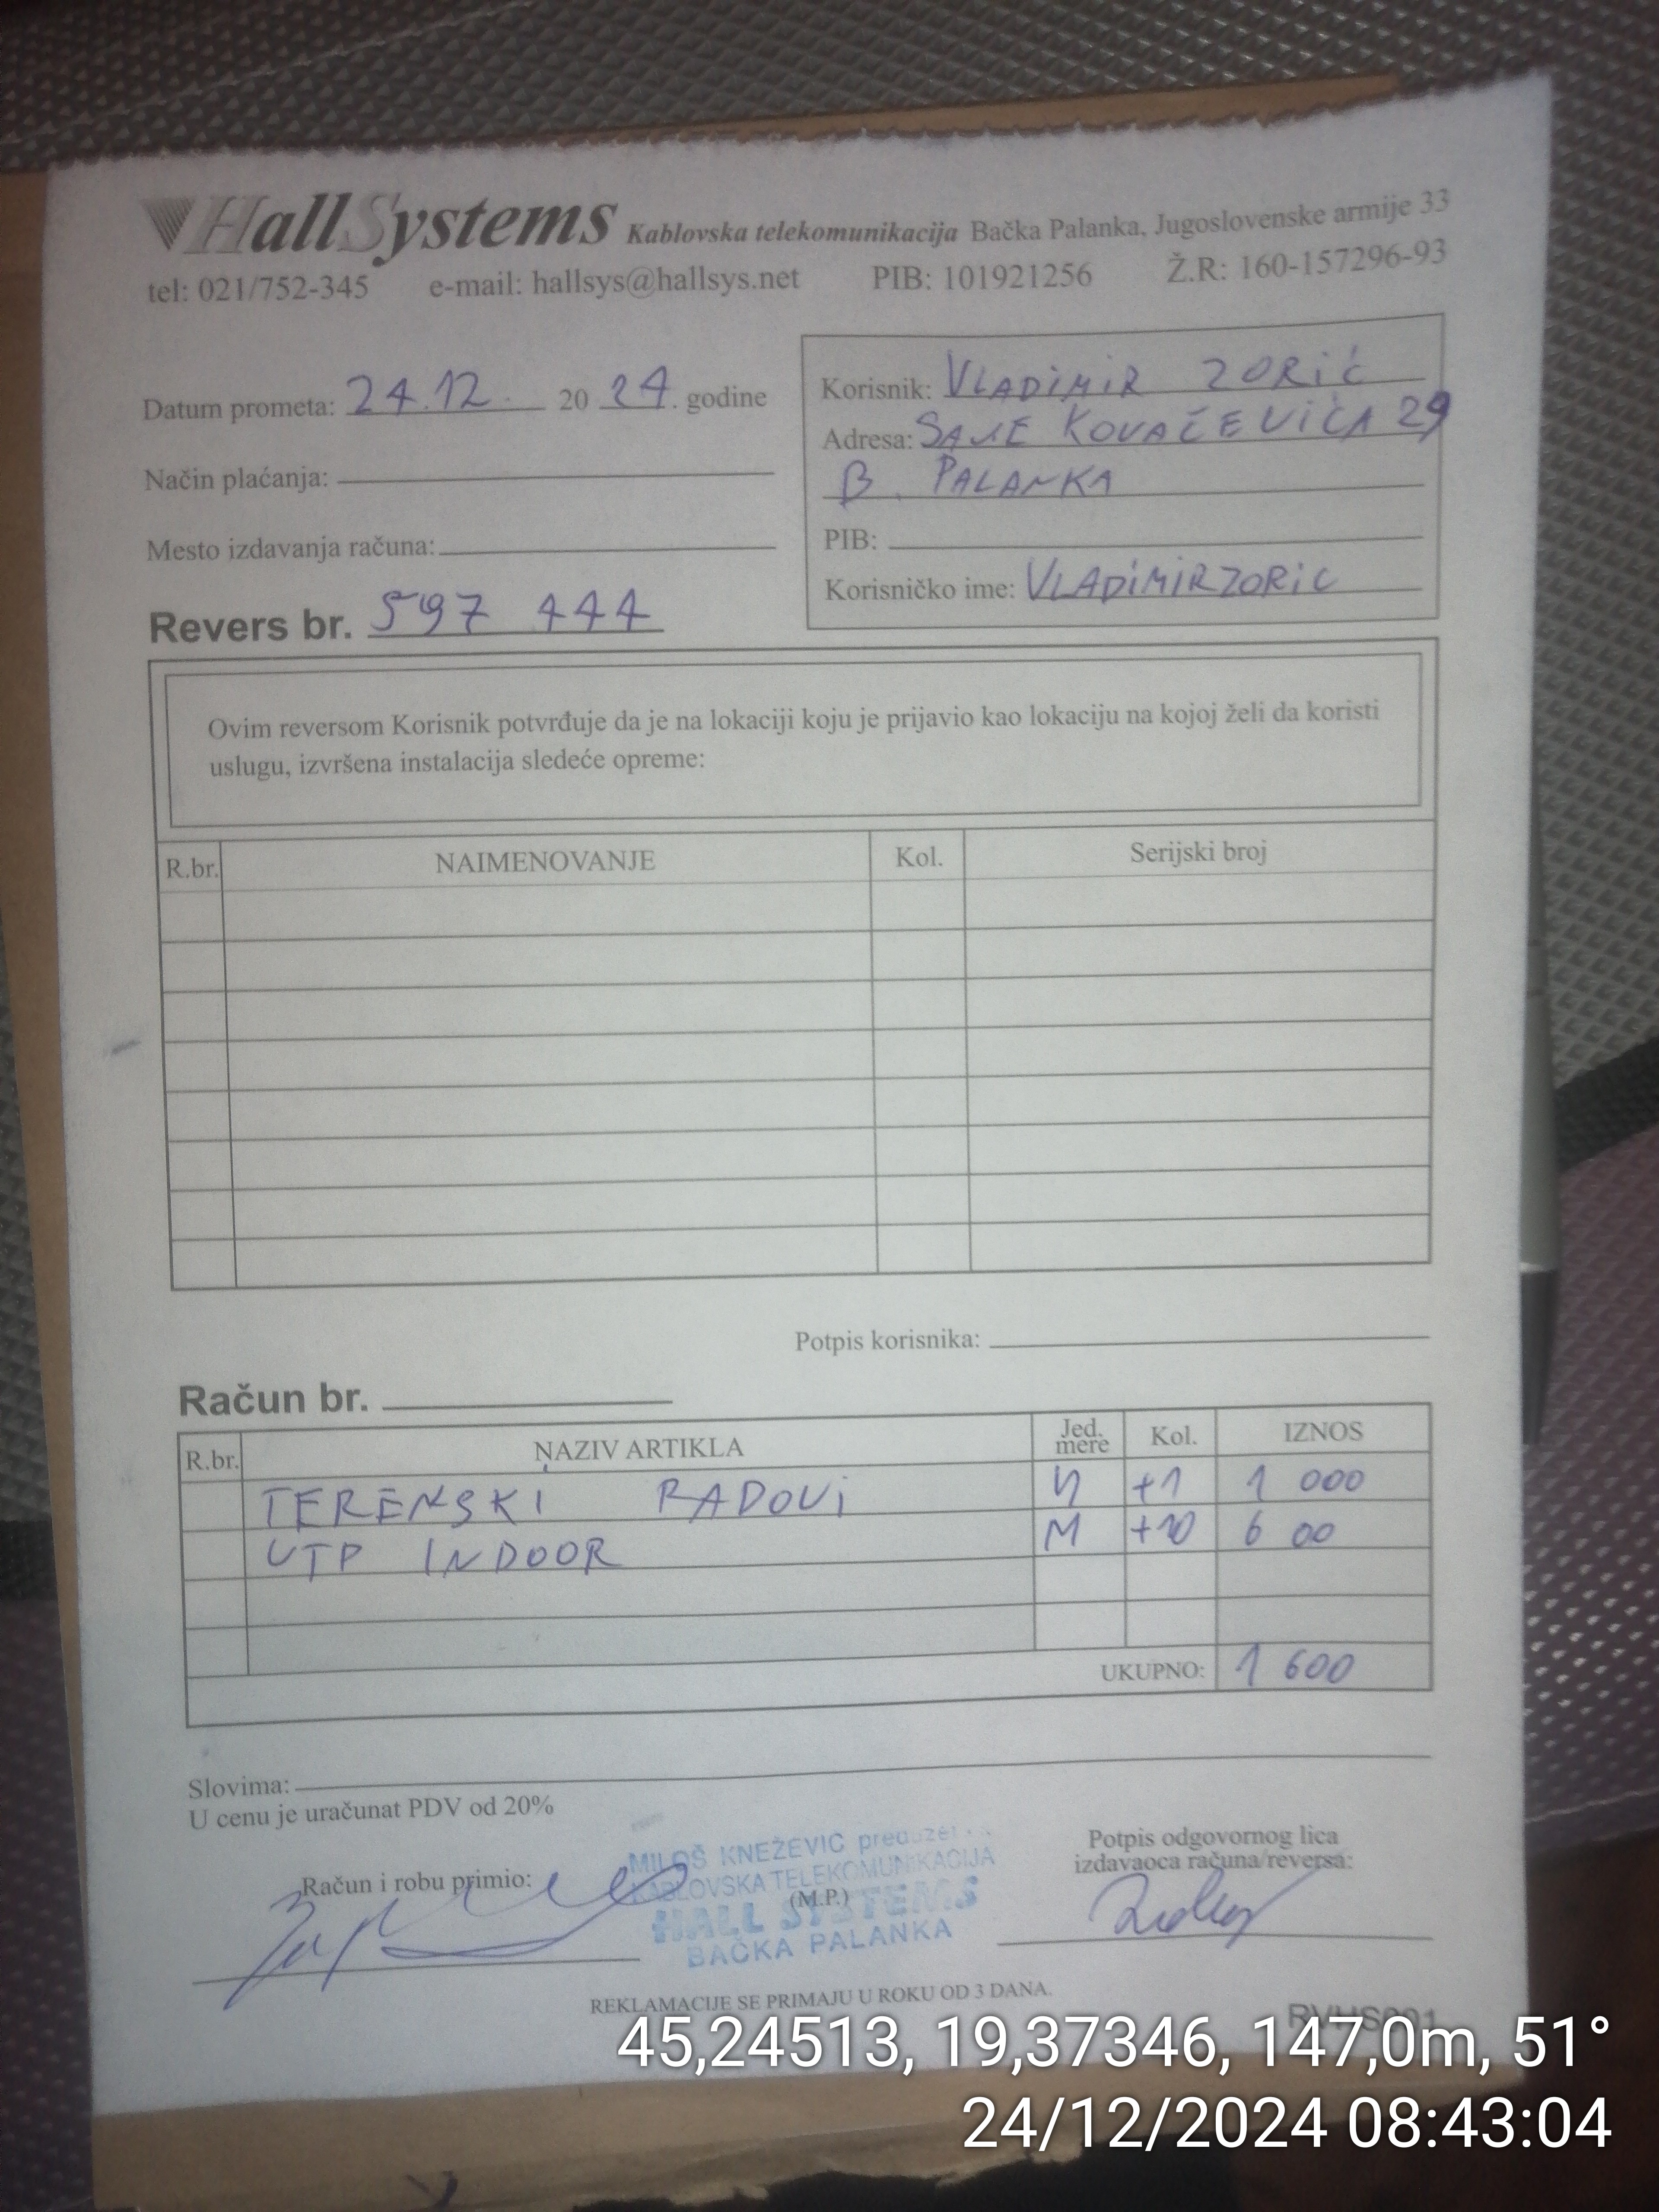 HallSystems Kablovska telekomunikacija Bačka Palanka, Jugoslovenske armije 33
tel: 021/752-345 e-mail: hallsys@hallsys.net PIB: 101921256 Ž.R: 160-157296-93
Datum prometa: 24.12. 20 24. godine
Način plaćanja:
Mesto izdavanja računa:
Revers br. 597 444
Korisnik: VLADIMIR ZORIĆ
Adresa: SAVE KOVAČEVIĆA 29
B. PALANKA
PIB:
Korisničko ime: VLADIMIRZORIC
Ovim reversom Korisnik potvrđuje da je na lokaciji koju je prijavio kao lokaciju na kojoj želi da koristi
uslugu, izvršena instalacija sledeće opreme:
R.br. NAIMENOVANJE Kol. Serijski broj
Potpis korisnika:
Račun br.
R.br. NAZIV ARTIKLA Jed. mere Kol. IZNOS
TERENSKI RADOVI +1 1 000
UTP INDOOR M +10 6 00
UKUPNO: 1 600
Slovima:
U cenu je uračunat PDV od 20%
Račun i robu primio:
MILOŠ KNEŽEVIĆ
KABLOVSKA TELEKOMUNIKACIJA
(M.P.)
HALL SYSTEMS
BAČKA PALANKA
Potpis odgovornog lica
izdavaoca računa/reversa:
REKLAMACIJE SE PRIMAJU U ROKU OD 3 DANA.
45,24513, 19,37346, 147,0m, 51°
24/12/2024 08:43:04